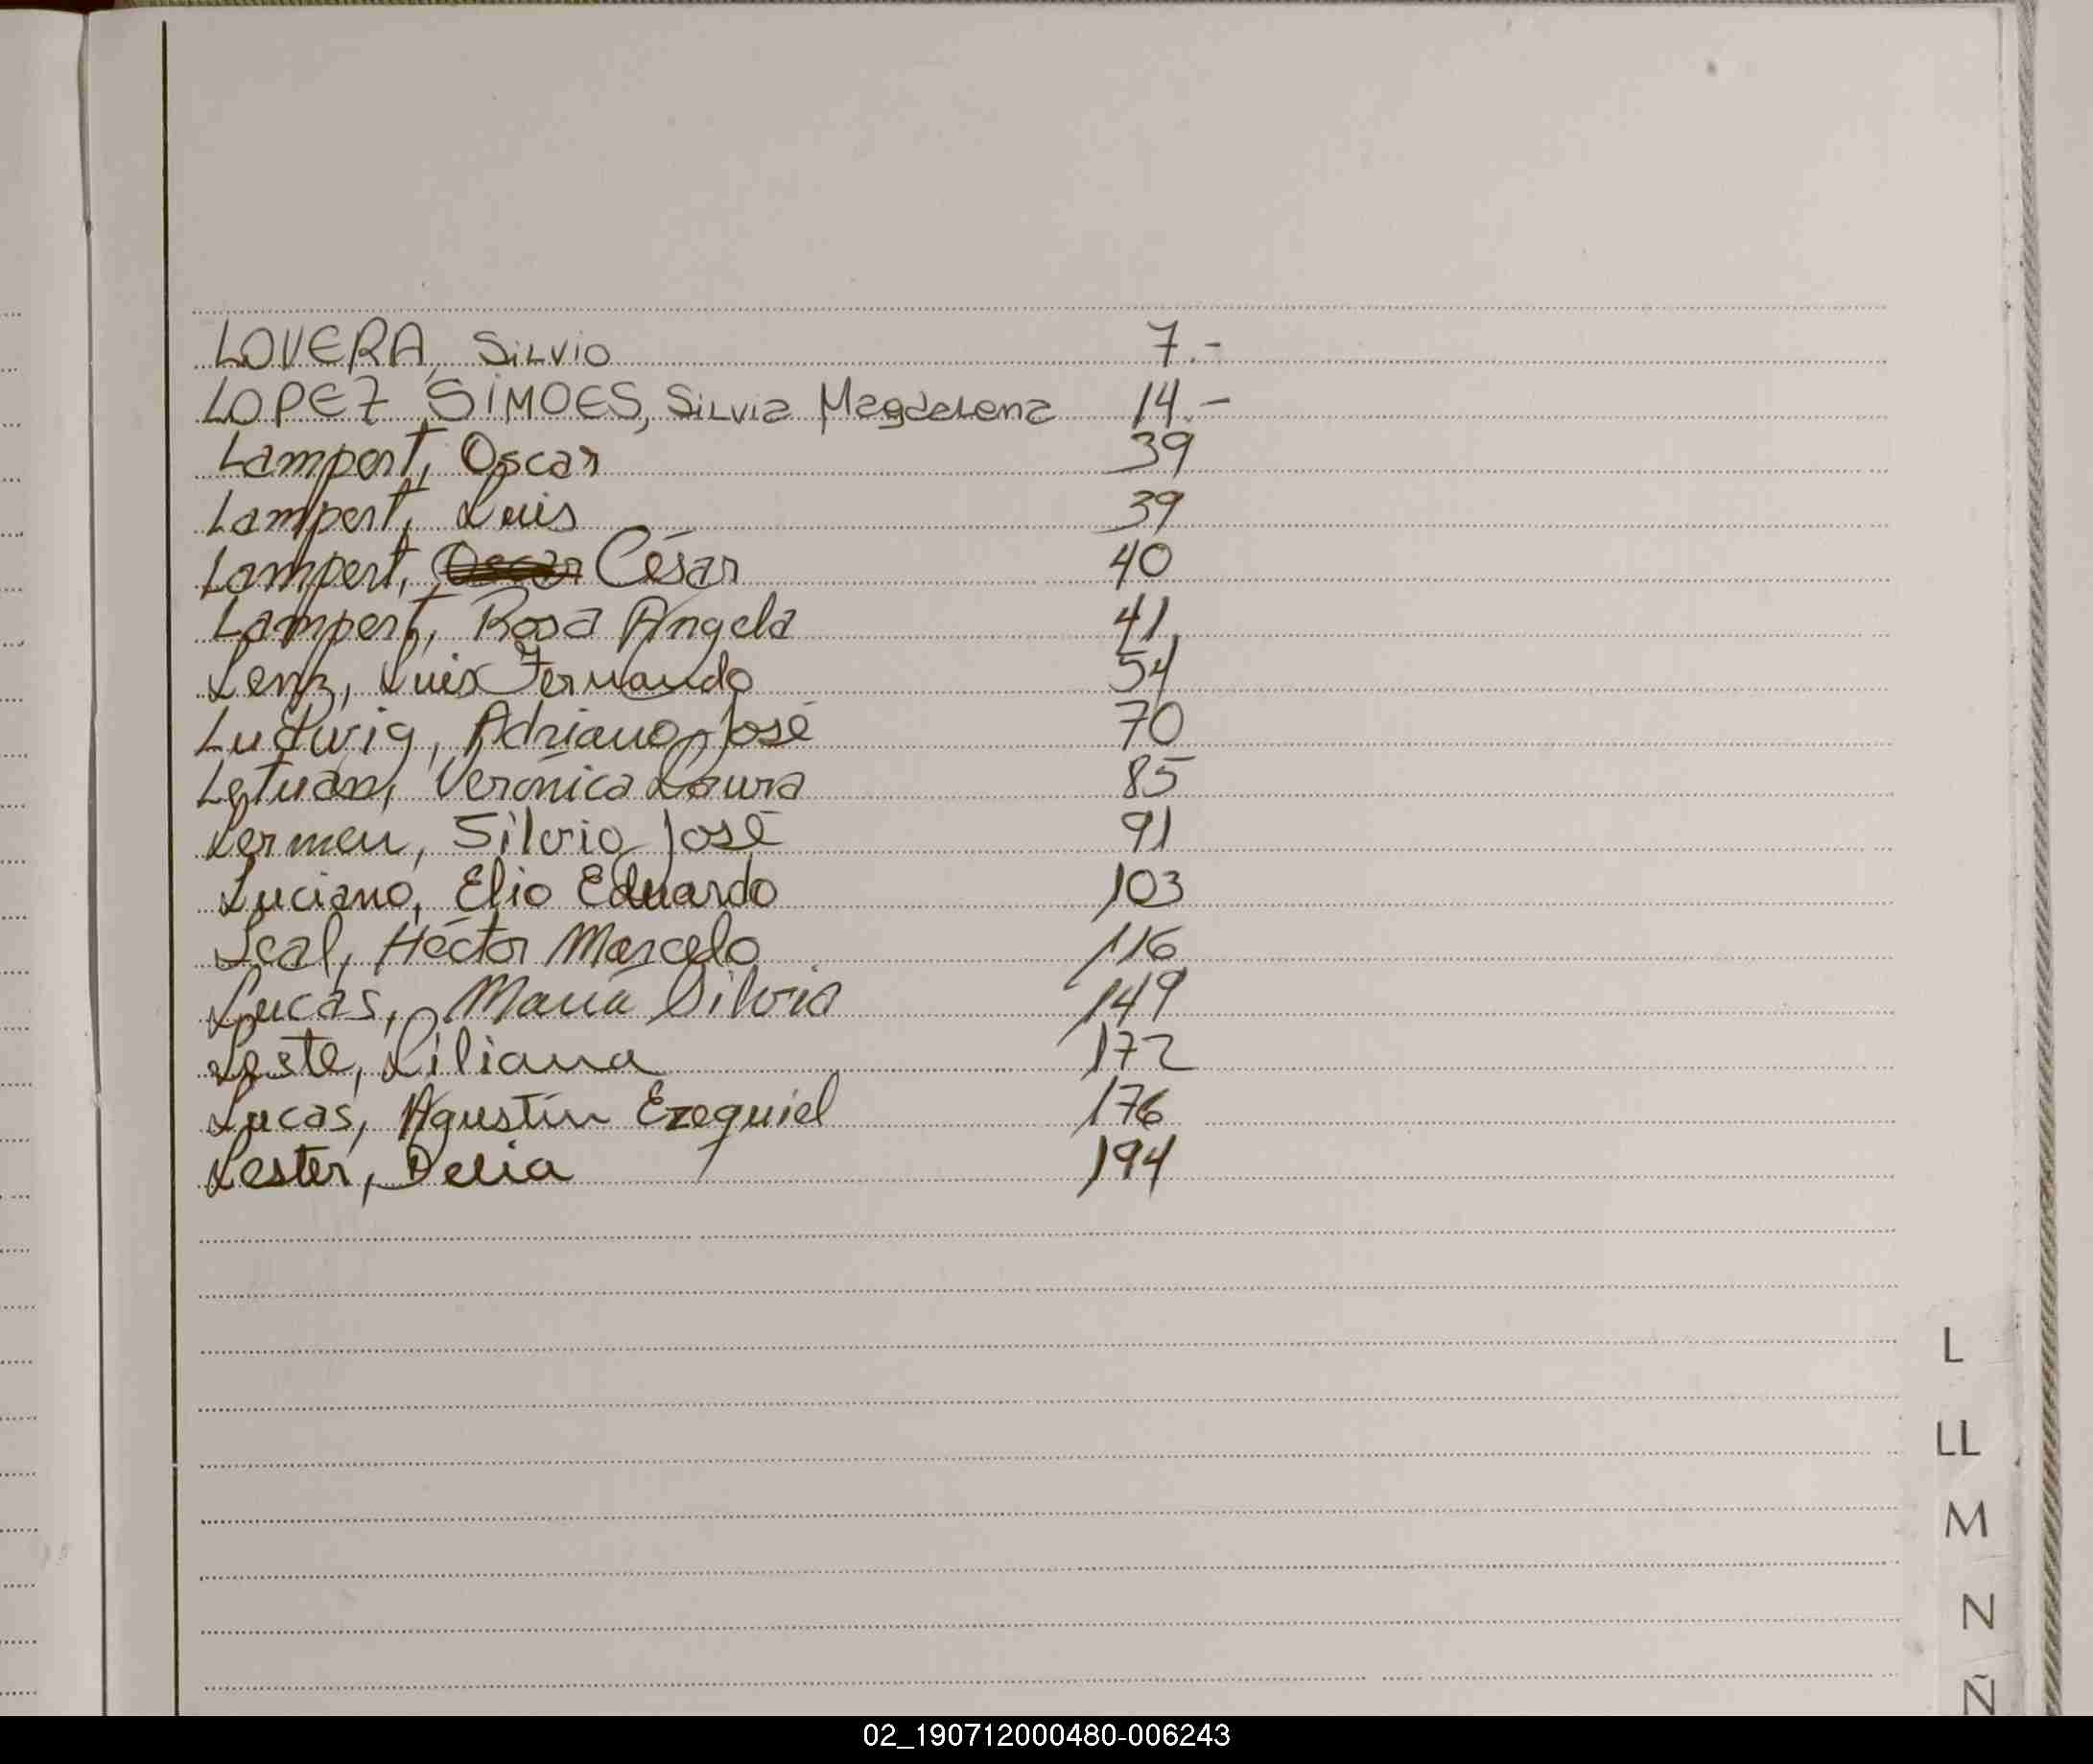 LOVERA, SiLViO 7.-
LOPEZ SiMOES, SiLVia MagdaLena 14.-
Lampert, Oscar 39
Lampert, Luis 39
Lampert, Oscar César 40
Lampert, Rosa Angela 41
Lenz, Luis Fernando 54
Ludwig, Adriano José 70
Verónica Laura 85
Lermen, Silvio José 91
Luciano, Elio Eduardo 103
Leal, Héctor Marcelo 116
Lucas, María Silvia 149
Leste, Liliana 172
Lucas, Agustín Ezequiel 176
Lester, Delia 194
L
LL
M
N
Ñ
02_190712000480-006243